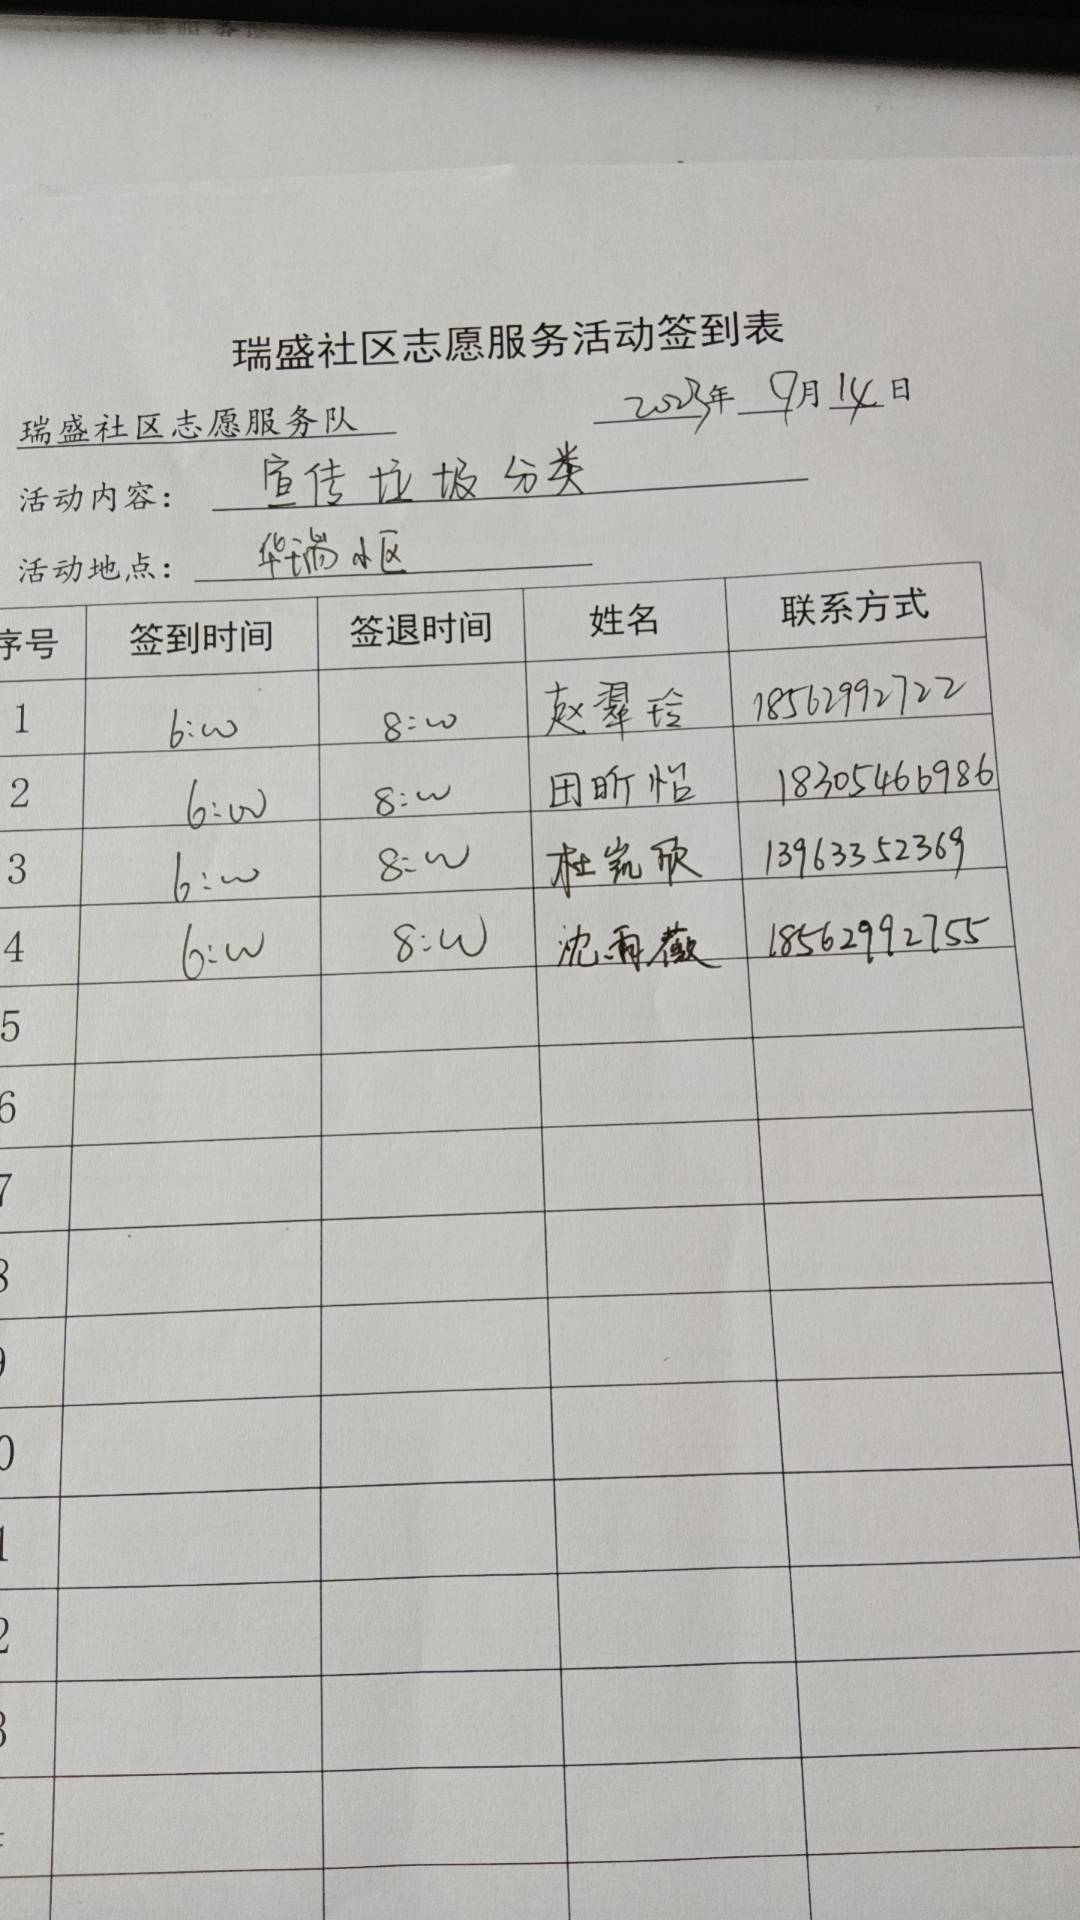 瑞盛社区志愿服务活动签到表
瑞盛社区志愿服务队 2023年 9月 14日
活动内容： 宣传垃圾分类
活动地点： 华瑞小区
序号 签到时间 签退时间 姓名 联系方式
1 6:00 8:00 赵翠玲 18562992722
2 6:00 8:00 田昕怡 18305466986
3 6:00 8:00 杜岚欣 13963352369
4 6:00 8:00 沈雨薇 18562992755
5
6
7
8
9
0
1
2
3